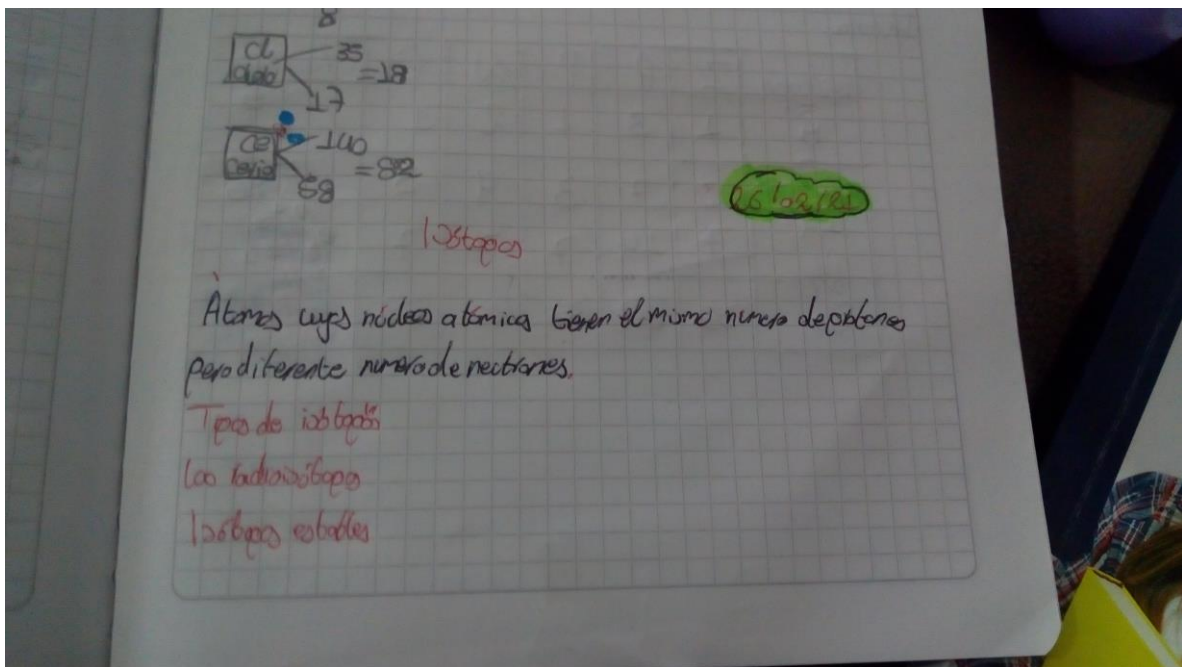 8
Cl
35
=18
17
Ce
140
Cerio
=82
58
26/02/21
Isótopos
Átomos cuyos núcleos atómicos tienen el mismo numero de protones
pero diferente numero de neutrones.
Tipos de isótopos
Los radioisótopos
Isótopos estables